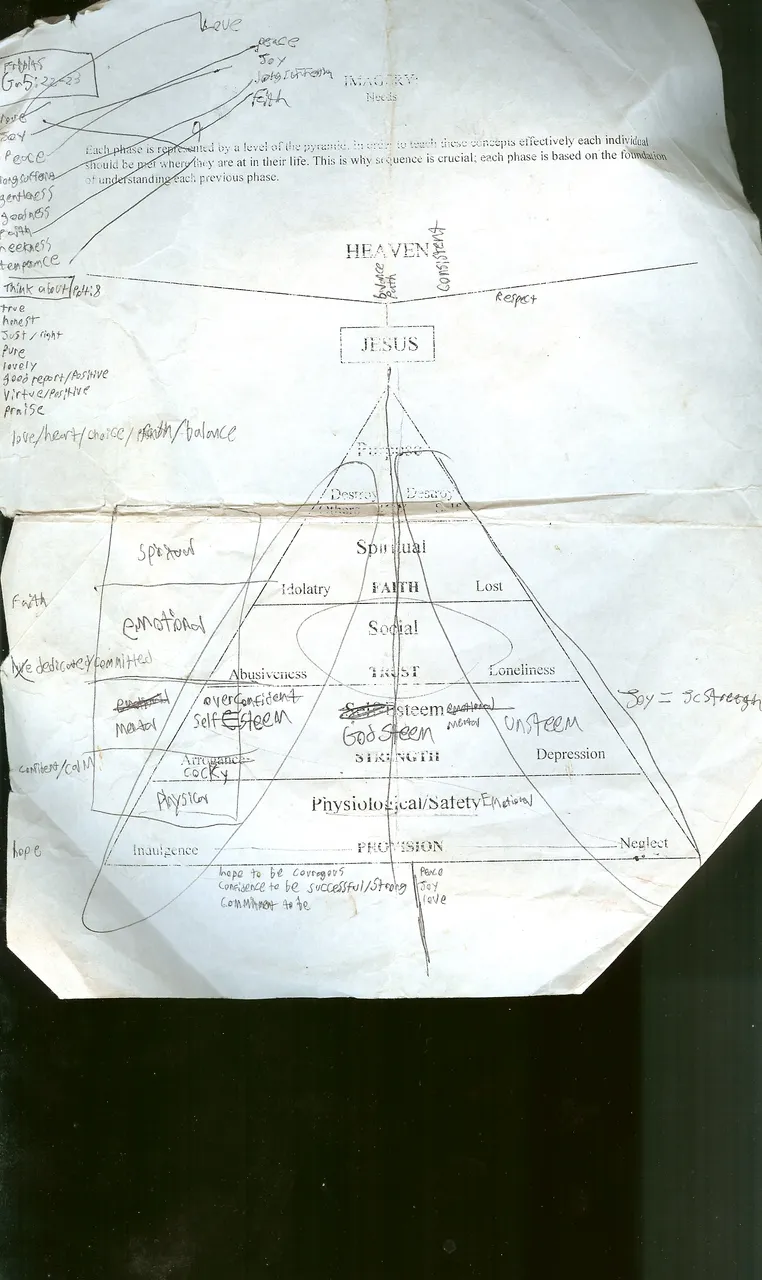 Love
peace
Joy
longsuffering
Faith
Ga 5:22-23
love
Joy
Peace
longsuffering
gentleness
goodness
faith
meekness
temperance
IMAGERY:
Needs
Each phase is represented by a level of the pyramid, in order to teach these concepts effectively each individual
should be met where they are at in their life. This is why sequence is crucial; each phase is based on the foundation
of understanding each previous phase.
HEAVEN
balance
Faith
Consistent
Respect
Think about
true
honest
Just / right
Pure
lovely
good report/Positive
Virtue/Positive
praise
love/heart/choice/ /balance
JESUS
Purpose
Destroy Destroy
Others Self
spiritual
Spiritual
Idolatry FAITH Lost
Faith
emotional
Social
dedicated/committed
Abusiveness TRUST Loneliness
mental
overconfident
self Esteem
Self Esteem emotional
mental
GodSteem
Unsteem
Joy = Strength
confident/calm
Arrogance
cocky
STRENGTH Depression
Physical
Physiological/Safety Emotional
hope
Indulgence PROVISION Neglect
hope to be couragous
Confidence to be successful/strong
Commitment to be
Peace
Joy
love